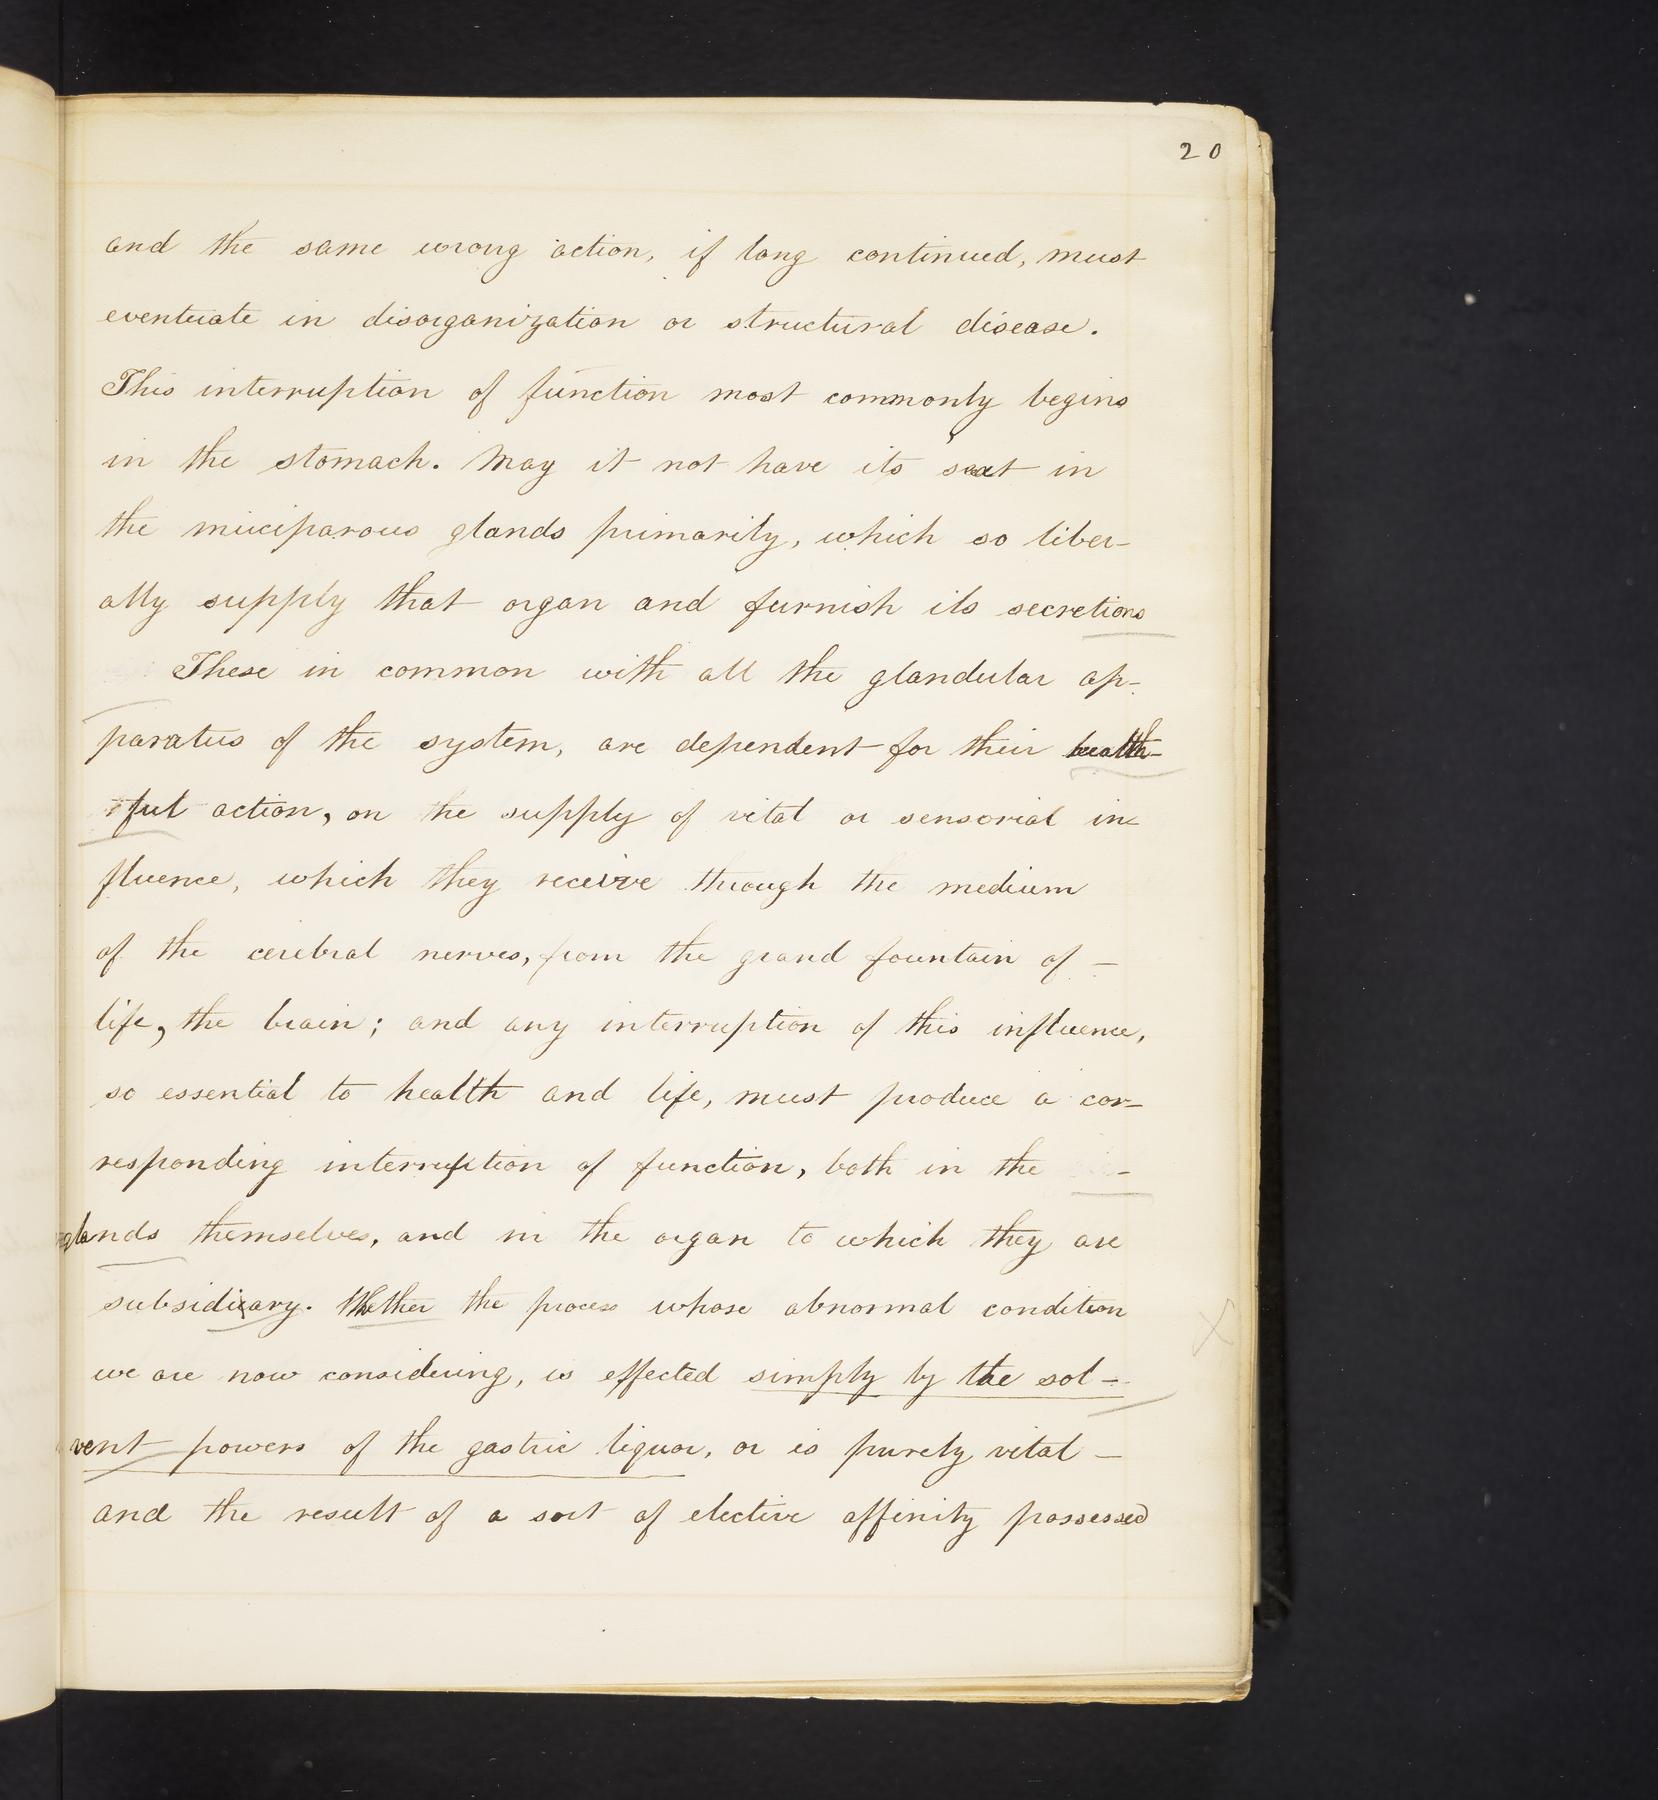 20
and the same wrong action, if long continued, must
eventuate in disorganization or structural disease.
This interruption of function most commonly begins
in the stomach. May it not have its seat in
the muciparous glands primarily, which so liber-
ally supply that organ and furnish its secretions
These in common with all the glandular ap-
paratus of the system, are dependent for their health-
ful action, on the supply of vital or sensorial in-
fluence, which they receive through the medium
of the cerebral nerves, from the grand fountain of -
life, the brain; and any interruption of this influence,
so essential to health and life, must produce a cor-
responding interruption of function, both in the -
glands themselves, and in the organ to which they are
subsidiary. Whether the process whose abnormal condition
we are now considering, is effected simply by the sol-
vent powers of the gastric liquor, or is purely vital -
and the result of a sort of elective affinity possessed